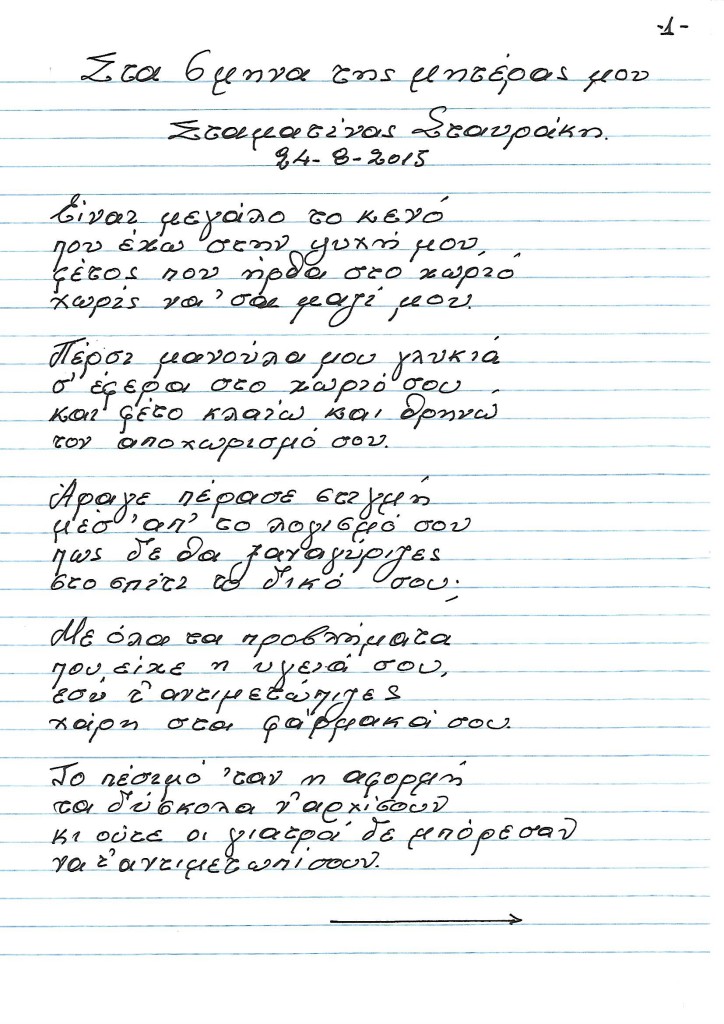 -1-
Στα 6μηνα της μητέρας μου
Σταματίνας Σταυράκη.
24-8-2015
Είναι μεγάλο το κενό
που έχω στην ψυχή μου,
φέτος που ήρθα στο χωριό
χωρίς να 'σαι μαζί μου.
Πέρσι μανούλα μου γλυκιά
σ' έφερα στο χωριό σου
και φέτο κλαίω και θρηνώ
τον αποχωρισμό σου.
Άραγε πέρασε στιγμή
μεσ' απ' το λογισμό σου
πως δε θα ξαναγύριζες
στο σπίτι το δικό σου;
Με όλα τα προβλήματα
που είχε η υγειά σου,
εσύ τ' αντιμετώπιζες
χάρη στα φάρμακά σου.
Το πέσιμό 'ταν η αφορμή
τα δύσκολα ν' αρχίσουν
κι ούτε οι γιατροί δε μπόρεσαν
να τ' αντιμετωπίσουν.